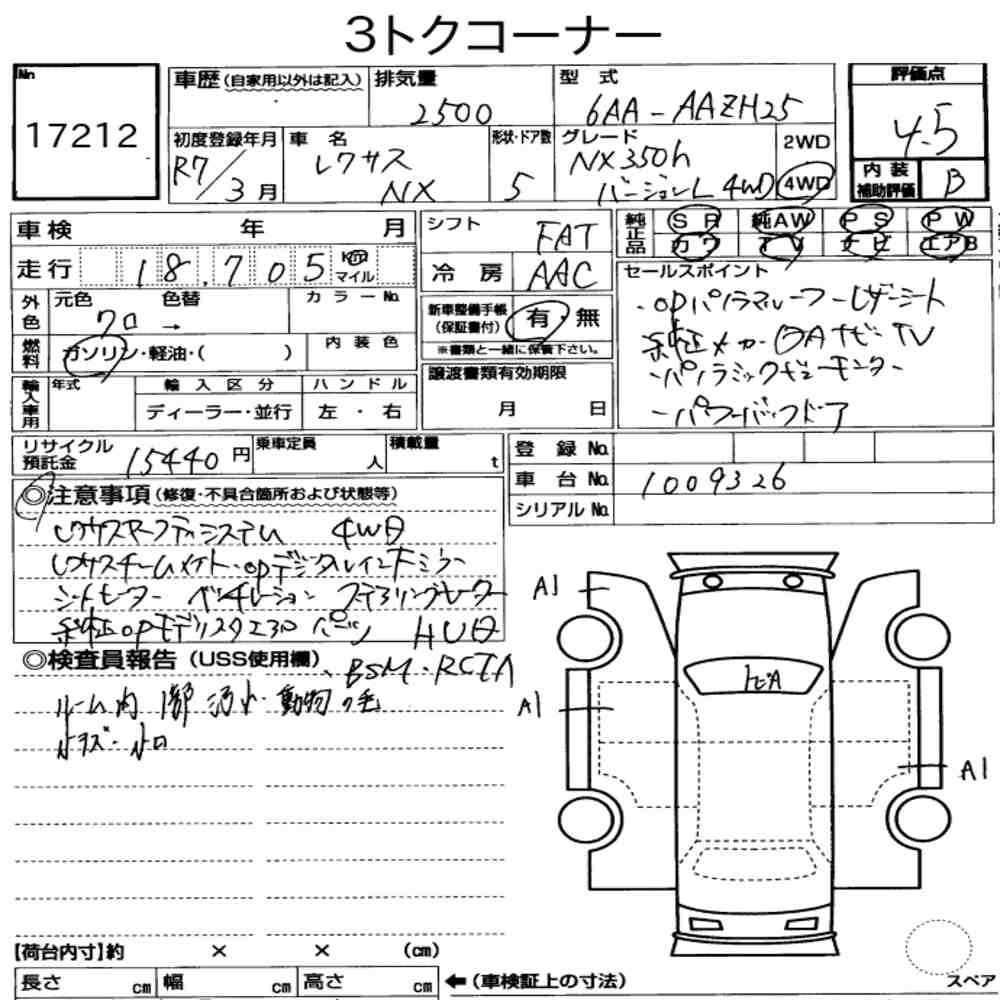 3トクコーナー
No
17212
車歴(自家用以外は記入)
排気量
2500
型式
6AA-AAZH25
評価点
4.5
初度登録年月
R7/3月
車名
レクサス
NX
形状・ドア数
5
グレード
NX350h
バージョンL 4WD
2WD
4WD
内装
補助評価
B
車検 年 月
シフト
FAT
純正品
SR 純AW PS PW
カワ TV ナビ エアB
走行
18,705
Km
マイル
冷房
AAC
セールスポイント
・opパノラマルーフ・レザーシート
純正メーカーOAナビ・TV
・パノラミックビューモニター
・パワーバックドア
外色
元色 色替
クロ →
カラーNo.
新車整備手帳
(保証書付)
有 無
※書類と一緒に保管下さい。
燃料
ガソリン・軽油・( )
内装色
譲渡書類有効期限
月 日
輸入車用
年式
輸入区分
ハンドル
ディーラー・並行
左・右
リサイクル
預託金
15440円
乗車定員
人
積載量
t
登録No.
車台No.
1009326
シリアルNo.
◎注意事項(修復・不具合箇所および状態等)
レクサスセーフティシステム 4WD
レクサスチームメイト・opデジタルインナーミラー
シートヒーター ベンチレーション ステアリングヒーター
純正opモデリスタエアロ HUD
◎検査員報告(USS使用欄)
BSM・RCTA
ルーム内 動物の毛
A1
A1
A1
【荷台内寸】約 × × (cm)
長さ cm 幅 cm 高さ cm
←(車検証上の寸法)
スペア